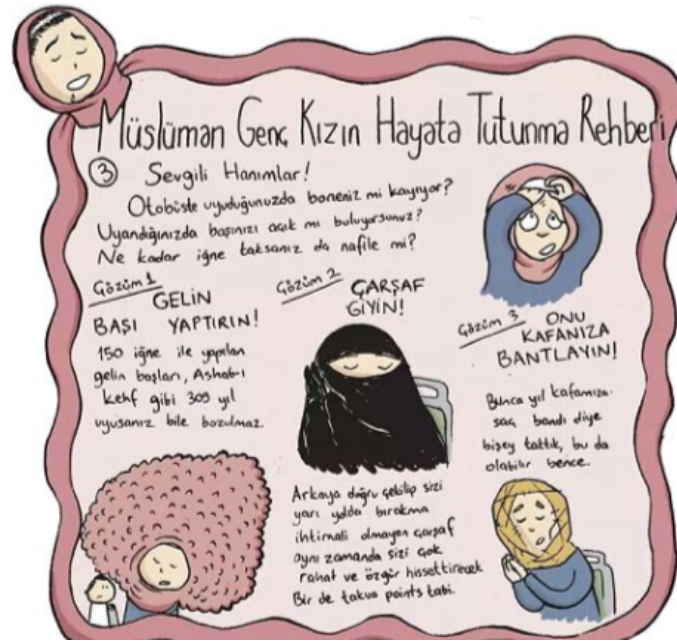 Müslüman Genç Kızın Hayata Tutunma Rehberi
3
Sevgili Hanımlar!
Otobüste uyuduğunuzda boneniz mi kayıyor?
Uyandığınızda başınızı açık mı buluyorsunuz?
Ne kadar iğne taksanız da nafile mi?
Çözüm 1
GELİN
BAŞI YAPTIRIN!
150 iğne ile yapılan
gelin başları, Ashab-ı
kehf gibi 309 yıl
uyusanız bile bozulmaz.
Çözüm 2
ÇARŞAF
GİYİN!
Arkaya doğru çekilip sizi
yarı yolda bırakma
ihtimali olmayan çarşaf
aynı zamanda sizi çok
rahat ve özgür hissettirecek
Bir de takva points tabi.
Çözüm 3
ONU
KAFANIZA
BANTLAYIN!
Bunca yıl kafamıza
saç bandı diye
bişey taktık, bu da
olabilir bence.